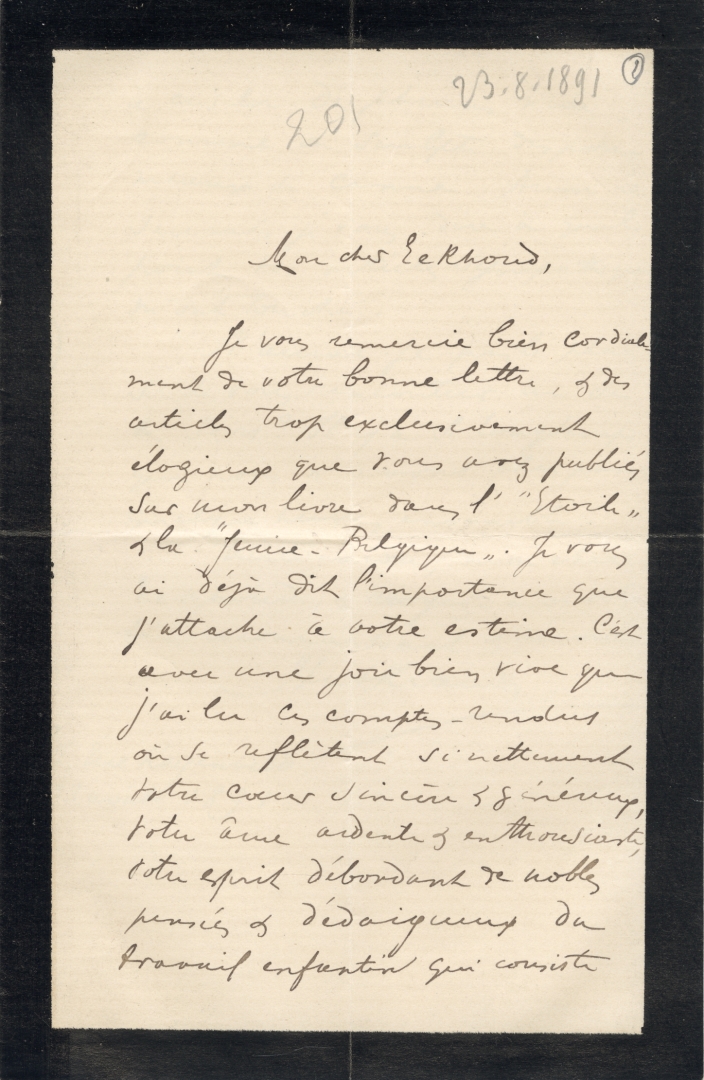 23.8.1891
1
201
Mon cher Eekhoud,
Je vous remercie bien cordiale-
ment de votre bonne lettre, & des
articles trop exclusivement
élogieux que vous avez publiés
sur mon livre dans l' "Etoile„
& la "Jeune-Belgique„. Je vous
ai déjà dit l'importance que
j'attache à votre estime. C'est
avec une joie bien vive que
j'ai lu ces comptes-rendus
où se reflètent si nettement
votre cœur sincère & généreux,
votre âme ardente & enthousiaste,
votre esprit débordant de nobles
pensées & dédaigneux du
travail enfantin qui consiste